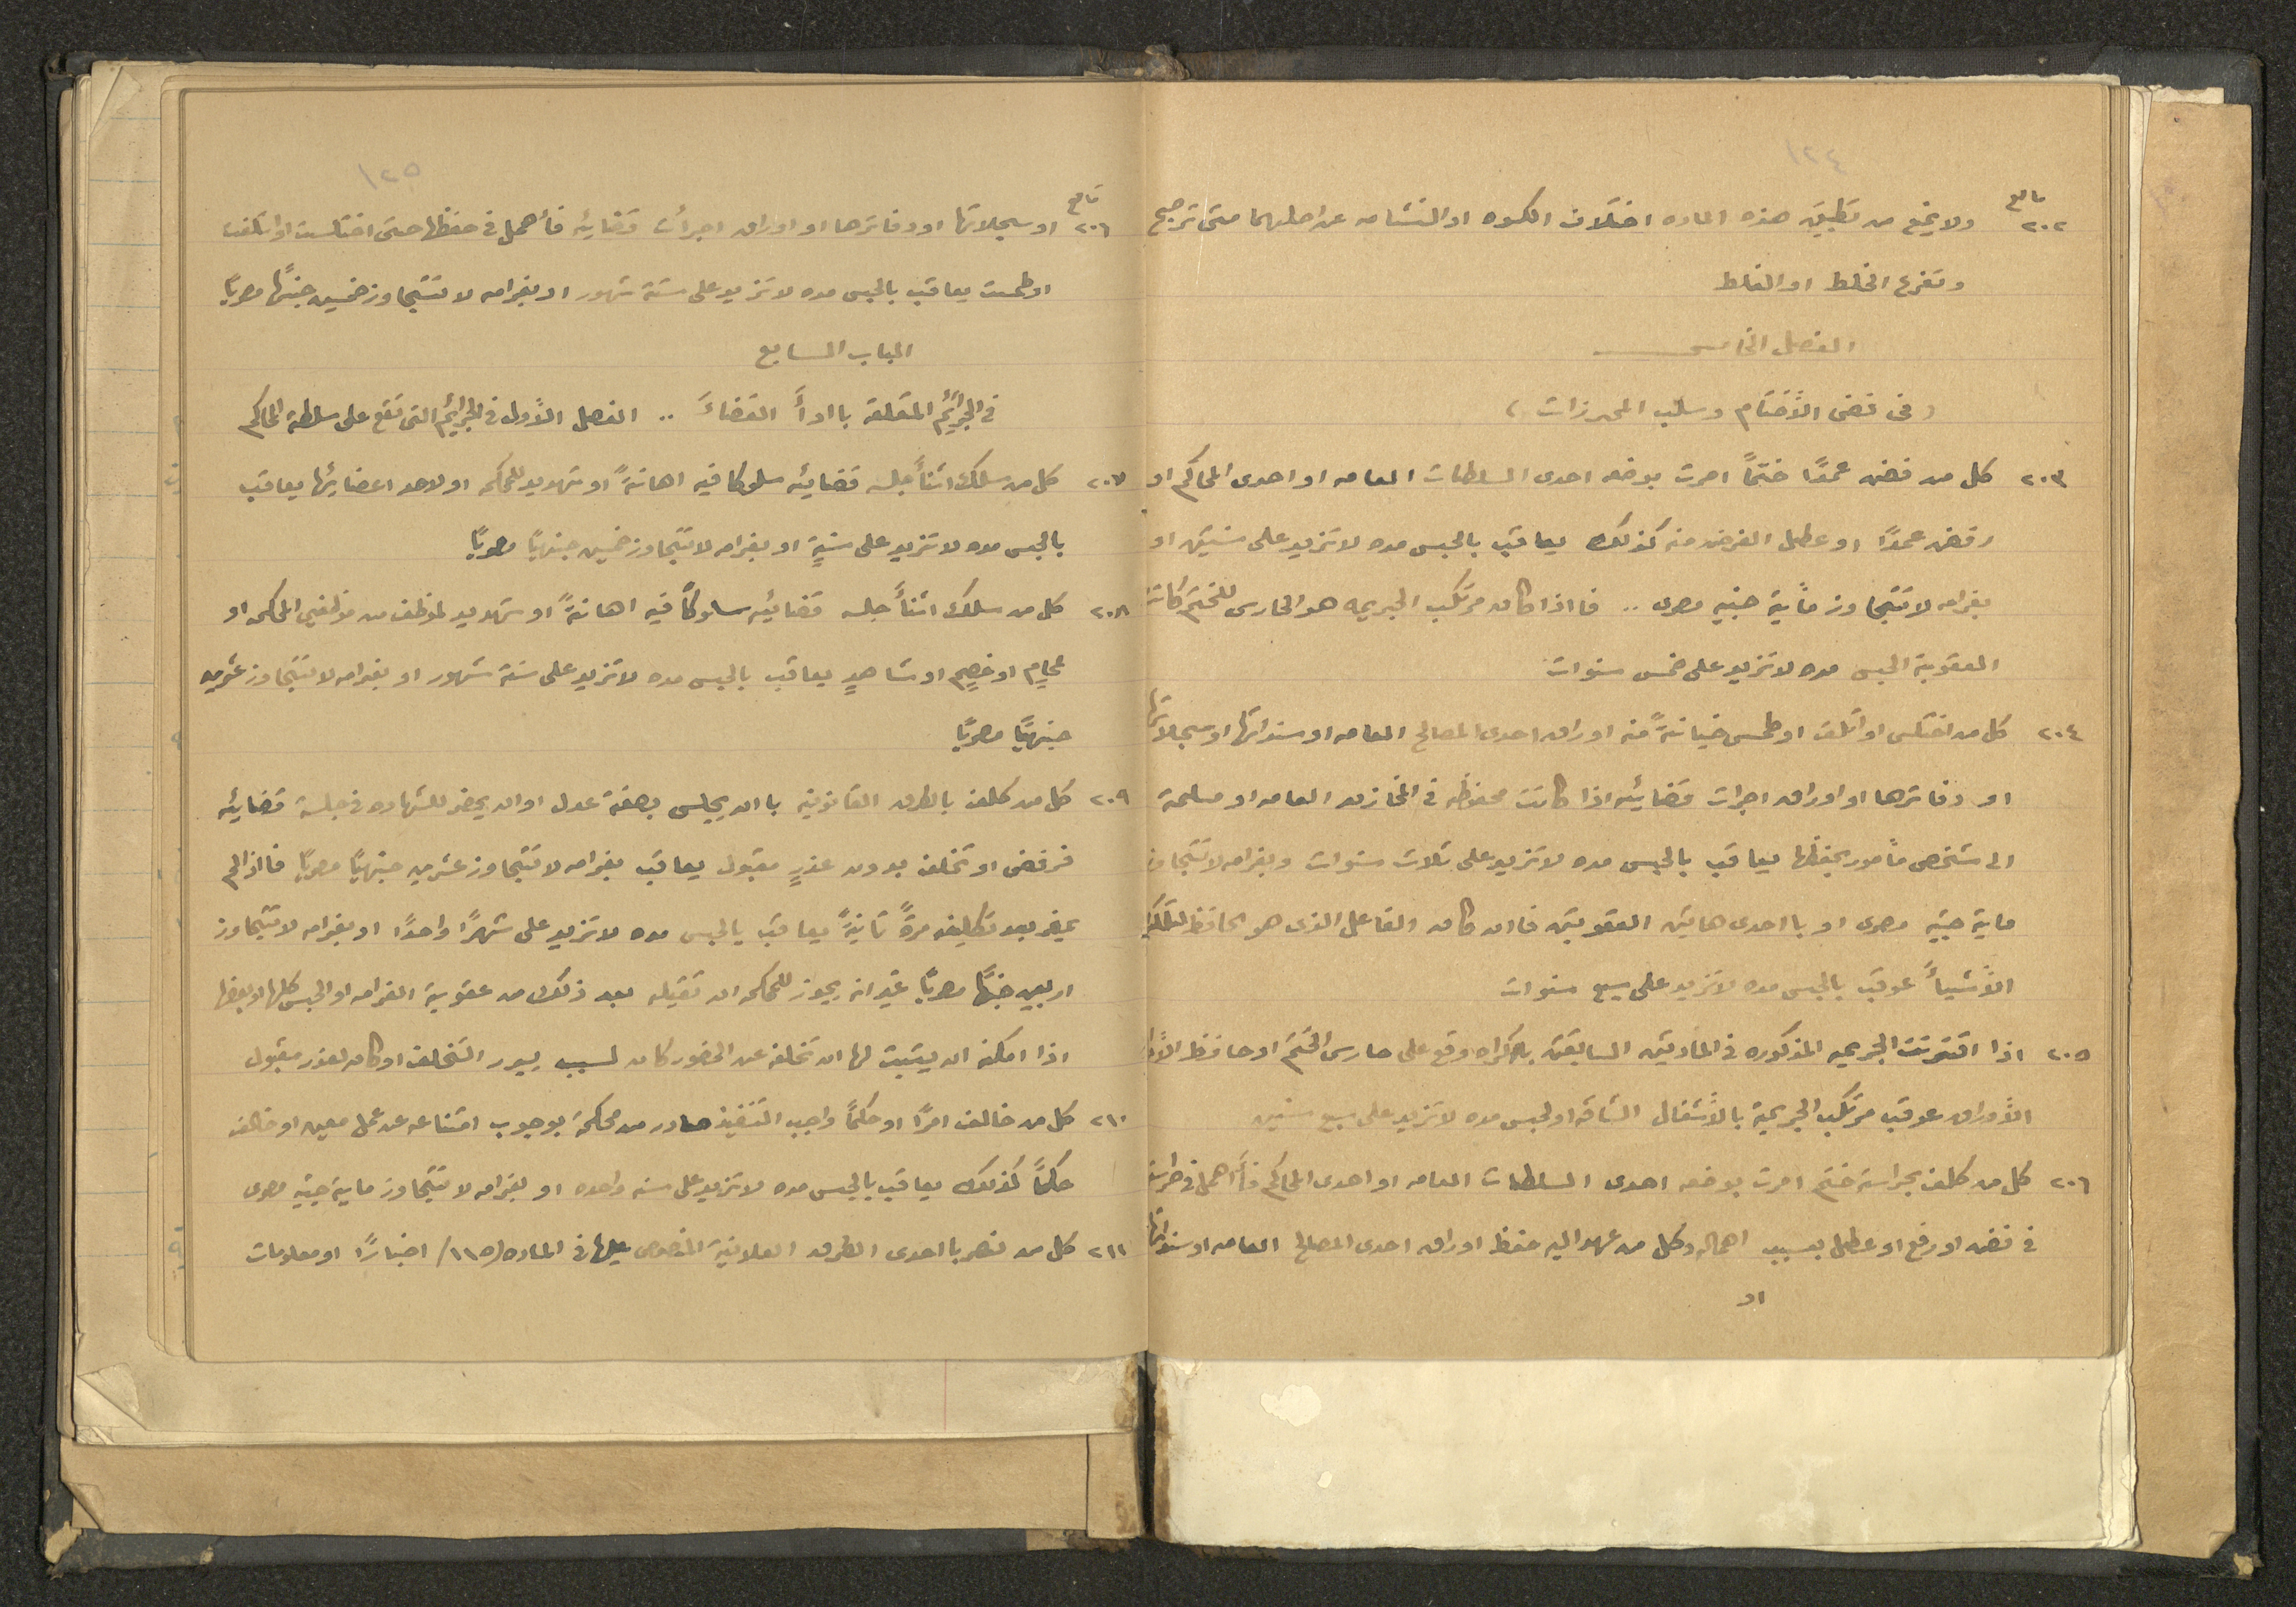 ١٢٤
تابع
٢٠٢ ولا يمنع من تطبيق هذه الماده اختلاف الكسوه او النشامه عن اصليهما متى ترجح
وتفرع الخلط او الغلط
الفصل الخامس
(فى فض الأختام وسلب المحرزات)
٢٠٣ كل من فض عمدًا ختمًا امرت بوضعه احدى السلطات العامه او احدى المحاكم او
رفض عمدًا او عطل الغرض منه كذلك يعاقب بالحبس مده لا تزيد على سنتين او
بغرامه لا تتجاوز مأية جنيه مصرى .. فااذا كان مرتكب الجريمه هو الحارس للختم كانت
العقوبة الحبس مده لا تزيد على خمس سنوات
٢٠٤ كل من اختلس او اتلف او طمس خيانةً منه اوراق احدى المصالح العامه او سنداتها او سجلاتها
او دفاترها او اوراق اجرات قضائيه اذا كانت محفوظه فى المخازن العامه او مسلمة
الى شخص مأمور بحفظها يعاقب بالحبس مده لا تزيد على ثلاث سنوات وبغرامه لا تتجاوز
ماية جنيه مصرى او بااحدى هاتين العقوبتين فاان كان الفاعل الذى هو الحافظ لتلك
الأشيأ عوقب بالحبس مده لا تزيد على سبع سنوات
٢٠٥ اذا اقترنت الجريمه المذكوره فى المادتين السابقتين بااكراه وقع على حارس الختم او حافظ
الأوراق عوقب مرتكب الجريمة بالأشغال الشاقه او لحبس مده لا تزيد على سبع سنين
٢٠٦ كل من كلف بحراسة ختم امرت بوضعه احدى السلطات العامه او احدى المحاكم فأهمل فى حراسته
فى فضه او رفع او عطل بسبب اهماله وكل من عهد اليه حفظ اوراق احدى المصالح العامه او سنداتها
او
١٢٥
تابع
٢٠٦ او سجلاتها او دفاترها او اوراق اجرأت قضائيه فأهمل فى حفظها حتى اختلست او اتلفت
او طمست يعاقب بالحبس مده لا تزيد على ستة شهور او بغرامه لا تتجاوز خمسين جنيهًا مصريًا
الباب السابع
فى الجرائم المتعلقة بااداأ القضاء .. الفصل الأول فى الجرائم التى تقع على سلطة المحاكم
٢٠٧ كل من سلك اثنأ جلسه قضائيه سلوكا فيه اهانةً او تهديد للمحكمه او لاحد اعضائها يعاقب
بالحبس مده لا تزيد على سنةٍ او بغرامه لا تتجاوز خمسين جنيهًا مصريًا
٢٠٨ كل من سلك اثنأ جلسه قضائيه سلوكاً فيه اهانةً او تهديد لموظف من موظفى المحكمه او
محامٍ او خصمٍ او شاهدٍ يعاقب بالحبس مده لا تزيد على ستة شهور او بغرامه لا تتجاوز عشرين
جنيهًا مصريًا
٢٠٩ كل من كلف بالطرق القانونيه باان يجلس بصفة عدل او ان يحضر للشهاده فى جلسة قضائيه
فرفض او تخلف بدون عذرٍ مقبول يعاقب بغرامه لا تتجاوز عشرين جنيهًا مصريًا فااذا لم
يحضر بعد تكليفه مرةً ثانيةً يعاقب بالحبس مده لا تزيد على شهرًا واحدًا او بغرامه لا تتجاوز
اربعين جنيهًا مصريًا غير انه يجوز للمحكمه ان تقيله بعد ذلك من عقوبة الغرامه او الحبس كلها او بعضها
اذا امكنه ان يثبت لها ان تخلفه عن الحضور كان لسبب يبرر التخلف او كان لعذر مقبول
٢١٠ كل من خالف امرًا او حكمًا واجب التنفيذ صادر من محكمة بوجوب امتناعه عن عمل معين او خالف
حكمًا كذلك يعاقب بالحبس مده لا تزيد على سنه واحده او بغرامه لا تتجاوز ماية جنيه مصرى
٢١١ كل من نشر بااحدى الطرق العلانية المنصوص عليها فى الماده (١١٥) اخبارًا او معلومات